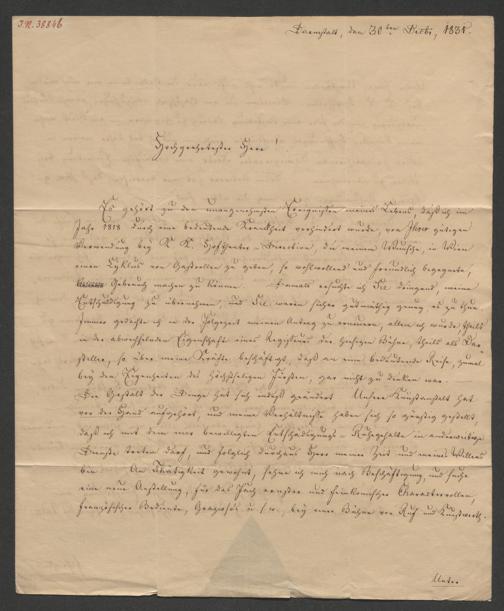 I.N. 38846
Darmstadt, den 30ten Dezbr, 1831.
Hochgeehrtester Herr!
Es gehört zu den unangenehmsten Ereignissen meines Lebens, daß ich im
Jahr 1818 durch eine bedeutende Krankheit verhindert wurde, von Ihrer gütigen
Verwendung bey K. K. Hoftheater-Direction, die meinem Wunsche, in Wien
einen Cyklus von Gastrollen zu geben, so wohlwollend und freundlich begegnete,
Gebrauch machen zu können. Damals ersuchte ich Sie dringend, meine
Entschuldigung zu übernehmen, und Sie waren sicher gutmüthig genug es zu thun.
Immer gedachte ich in der Folgezeit meinen Antrag zu erneuern, allein ich wurde, theils
in der abwechselnden Eigenschaft eines Regisseurs der hiesigen Bühne, theils als Dar-
steller, so über meine Kräfte beschäftigt, daß an eine bedeutende Reise, zumal
bey den Eigenheiten des höchstseligen Fürsten, gar nicht zu denken war.
Die Gestalt der Dinge hat sich indeß geändert. Unsere Kunstanstalt hat
vor der Hand aufgehört, und meine Verhältnisse haben sich so günstig gestellt
daß ich mit dem mir bewilligten Entschädigungs-Ruhegehalte in anderweitige
Dienste treten darf, und folglich durchaus Herr meiner Zeit und meines Willens
bin. An Thätigkeit gewohnt, sehne ich mich nach Beschäftigung, und suche
eine neue Anstellung, für das Fach ernster und feinkomischer Characterrollen,
französischer Bediente, Graziosos u. s. w., bey einer Bühne von Ruf und Kunstwerth.
Unter